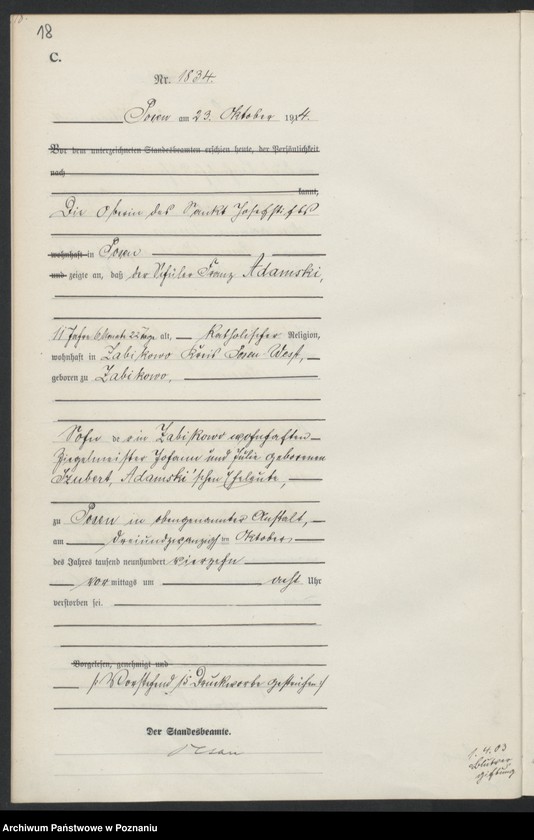 18
C.
Nr. 1834.
Posen am 23. Oktober 1914.
Vor dem unterzeichneten Standesbeamten erschien heute, der Persönlichkeit
nach
kannt,
Die Oberin des Sankt Josephstifts
wohnhaft in Posen
und zeigte an, daß der Schüler Franz Adamski,
11 Jahre 6 Monate 22 Tage alt, katholischer Religion,
wohnhaft in Zabikowo Kreis Posen-West,
geboren zu Zabikowo,
Sohn der in Zabikowo wohnhaften
Ziegelmeister Johann und Julie geborenen
Adamski'schen Eheleute,
zu Posen in obengenannter Anstalt,
am dreiundzwanzigsten Oktober
des Jahres tausend neunhundert vierzehn
vormittags um acht Uhr
verstorben sei.
Vorgelesen, genehmigt und
Vorstehend 15 Druckworte gestrichen
Der Standesbeamte.
1.4.03
Blutver
giftung
Archiwum Państwowe w Poznaniu